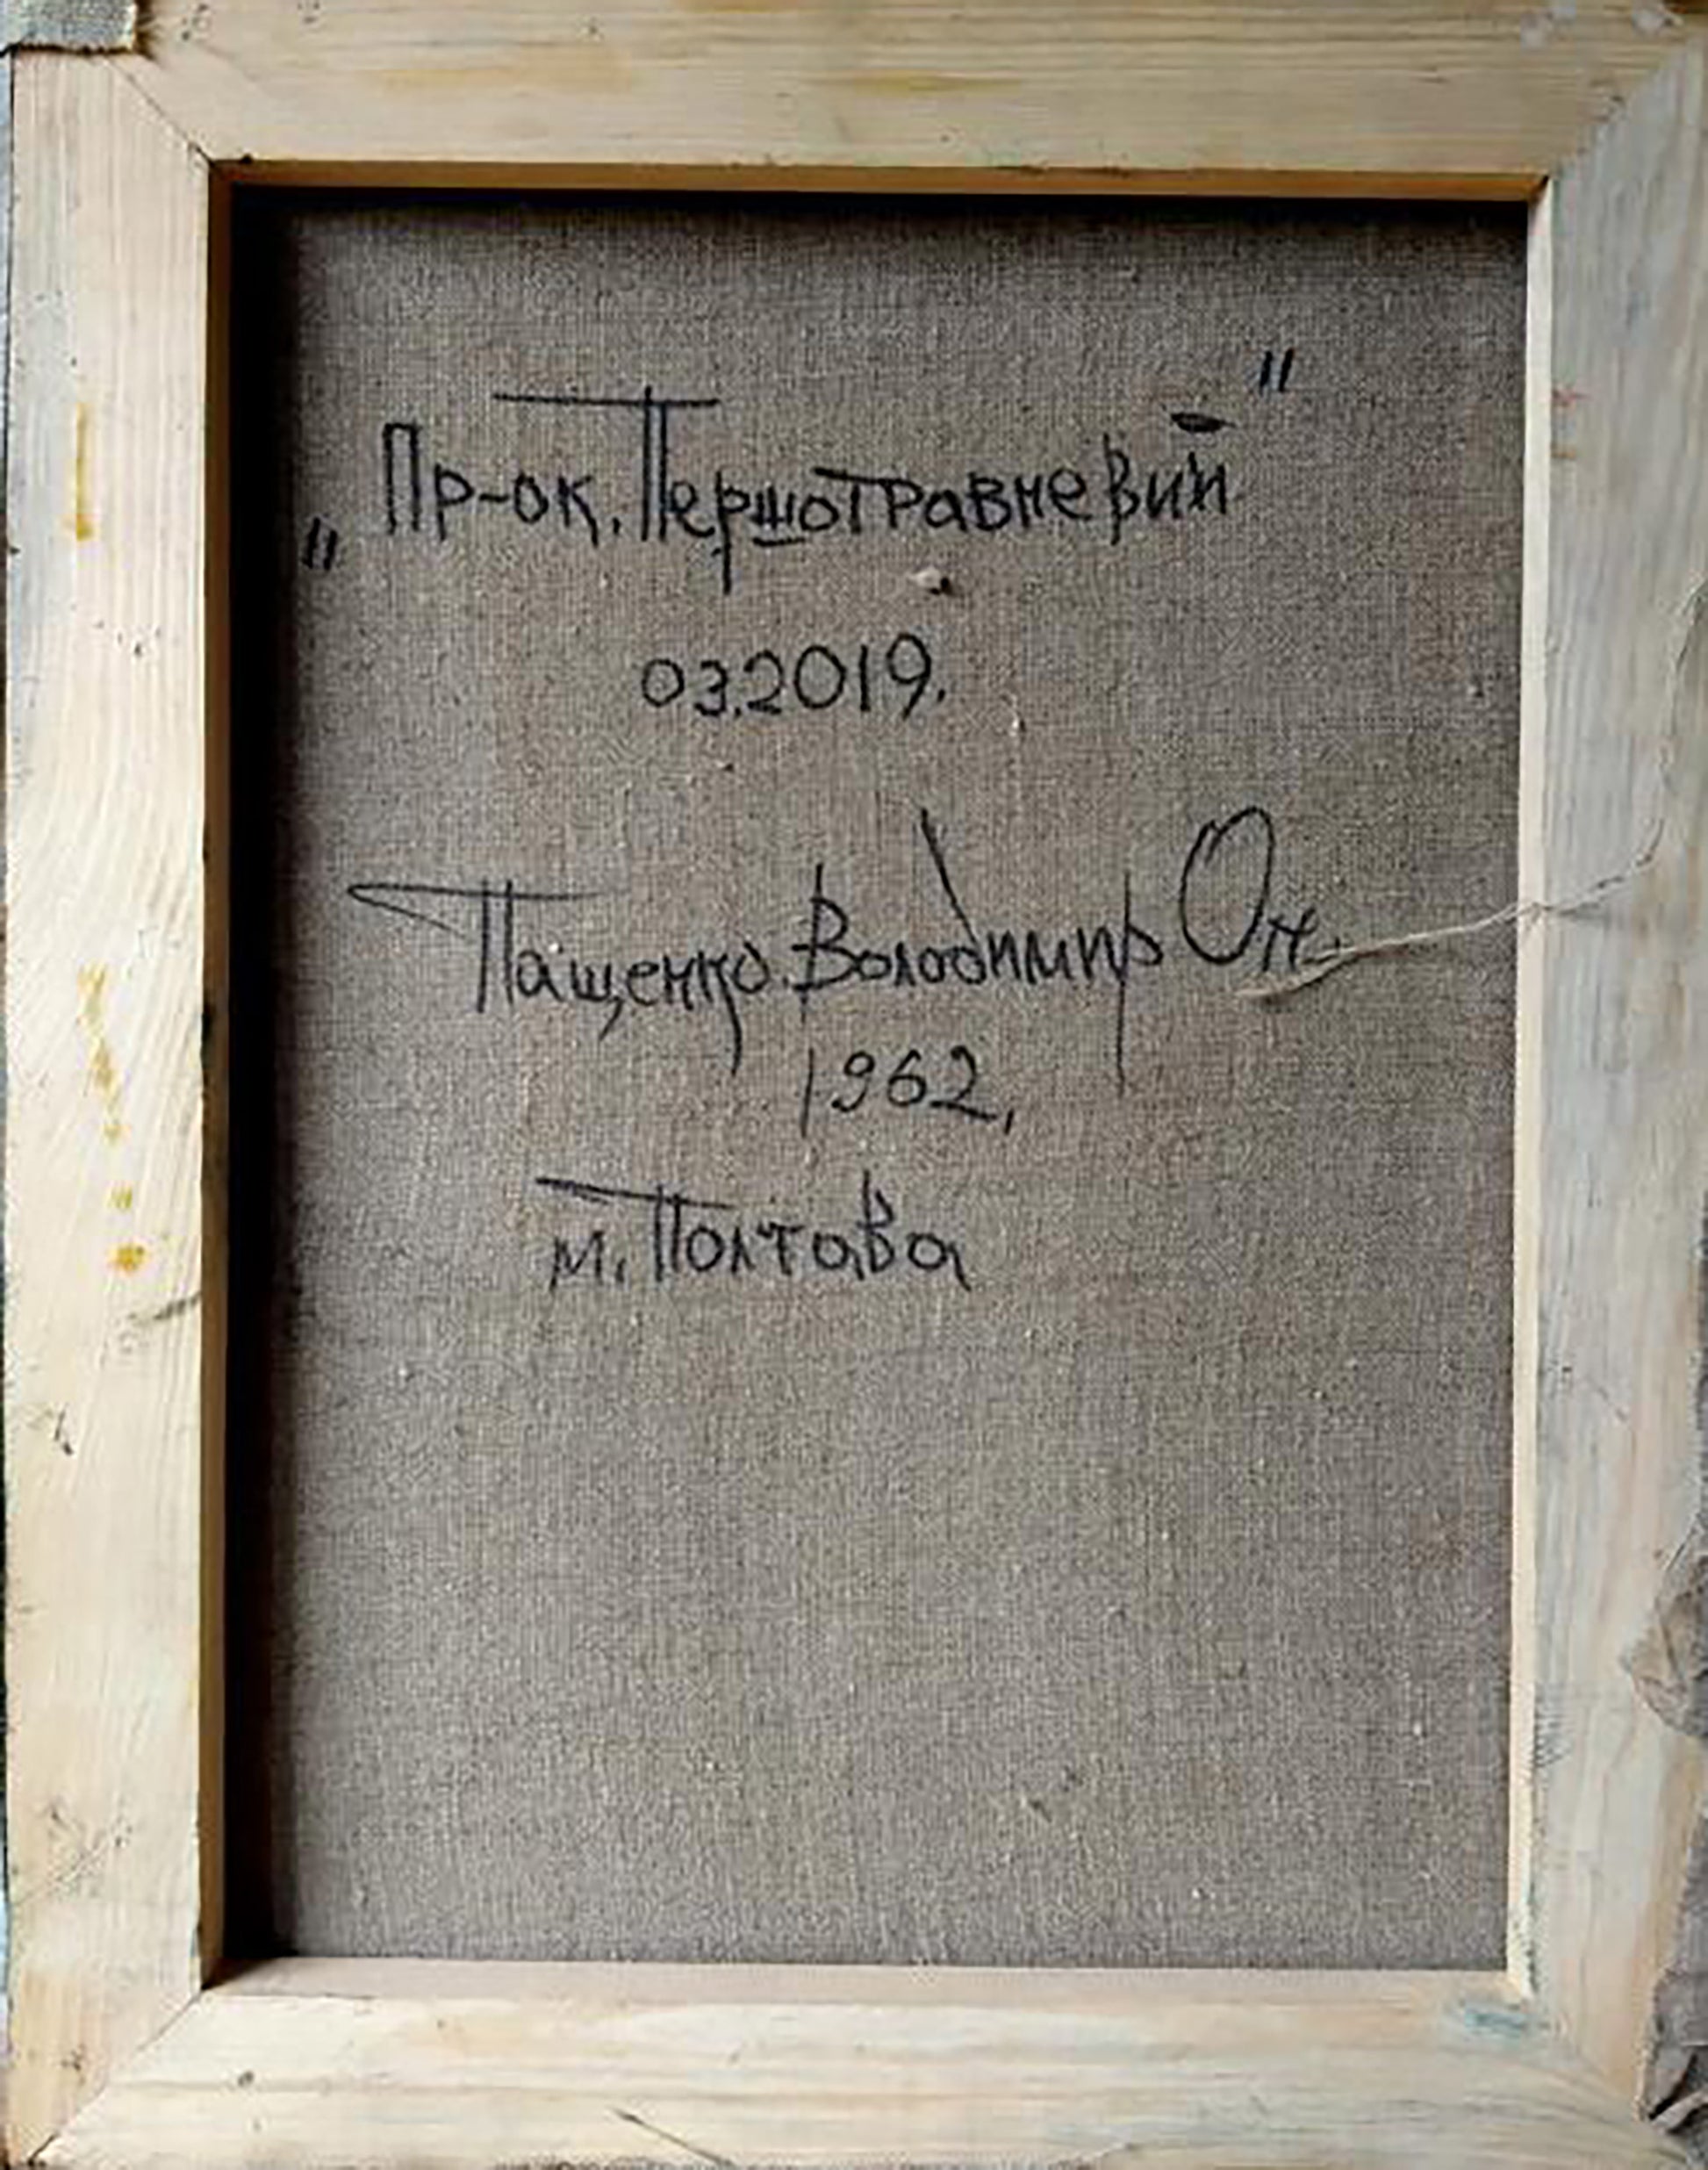 „Пр-ок. Першотравневий"
03.2019.
Пащенко. Володимир Он.
1962,
м. Полтава